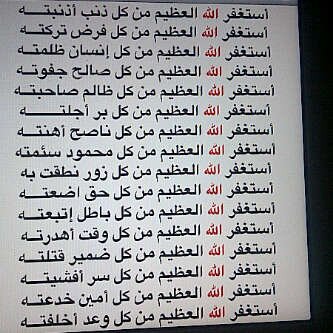 أستغفر الله العظيم من كل ذنب أذنبتـــه
أستغفر الله العظيم من كل فرض تركتـــه
أستغفر الله العظيم من كل إنسان ظلمتـه
أستغفر الله العظيم من كل صالح جفوتـه
أستغفر الله العظيم من كل ظالم صاحبتـه
أستغفر الله العظيم من كل بر أجلتـــــه
أستغفر الله العظيم من كل ناصح أهنتـــه
أستغفر الله العظيم من كل محمود سئمته
أستغفر الله العظيم من كل زور نطقت به
أستغفر الله العظيم من كل حق اضعتـــه
أستغفر الله العظيم من كل باطل إتبعتـه
أستغفر الله العظيم من كل وقت أهدرتــه
أستغفر الله العظيم من كل ضمير قتلتــه
أستغفر الله العظيم من كل سر أفشيتـــه
أستغفر الله العظيم من كل أمين خدعتـه
أستغفر الله العظيم من كل وعد أخلفتـه